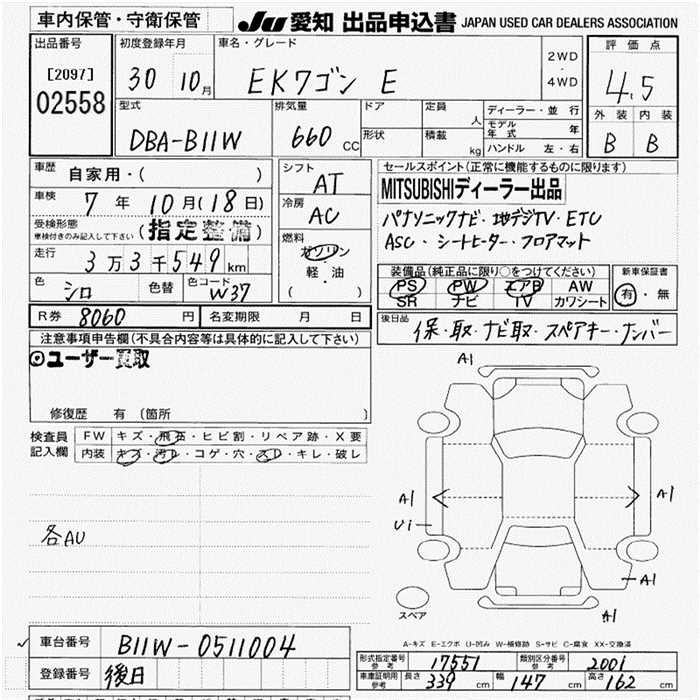 車内保管・守衛保管
JU 愛知 出品申込書 JAPAN USED CAR DEALERS ASSOCIATION
出品番号
[2097]
02558
初度登録年月
30 10月
車名・グレード
EKワゴン E
2WD
・
4WD
評価点
4.5
外装 内装
B B
型式
DBA-B11W
排気量
660 CC
ドア
形状
定員 人
積載 kg
ディーラー・並行
モデル年式 年
ハンドル 左・右
車歴
自家用・( )
車検
7年 10月(18日)
受検形態
車検付きのみ記入して下さい
(指定整備)
走行
3万3千549km
色
シロ
色替
色コード
W37
シフト
AT
冷房
AC
燃料
ガソリン
軽・油
( )
R券 8060 円
名変期限 月 日
セールスポイント(正常に機能するものに限ります)
MITSUBISHIディーラー出品
パナソニックナビ・地デジTV・ETC
ASC・シートヒーター・フロアマット
装備品(純正品に限り○をつけてください)
PS PW エアB AW
SR ナビ TV カワシート
新車保証書
有・無
後日品
保・取・ナビ取・スペアキー・ナンバー
注意事項申告欄(不具合内容等は具体的に記入して下さい)
◎ユーザー買取
修復歴 有(箇所 )
検査員
記入欄
FW キズ・飛石・ヒビ割・リペア跡・X要
内装 キズ・汚レ・コゲ・穴・スレ・キレ・破レ
各AU
A1
A1
Ui
A1
A1
A1
スペア
A-キズ E-エクボ U-凹み W-補修跡 S-サビ C-腐食 XX-交換済
車台番号 B11W-0511004
登録番号 後日
形式指定番号 参考 17551
類別区分番号 参考 2001
車庫証明用 参考 長さ 339cm 幅 147cm 高さ 162cm